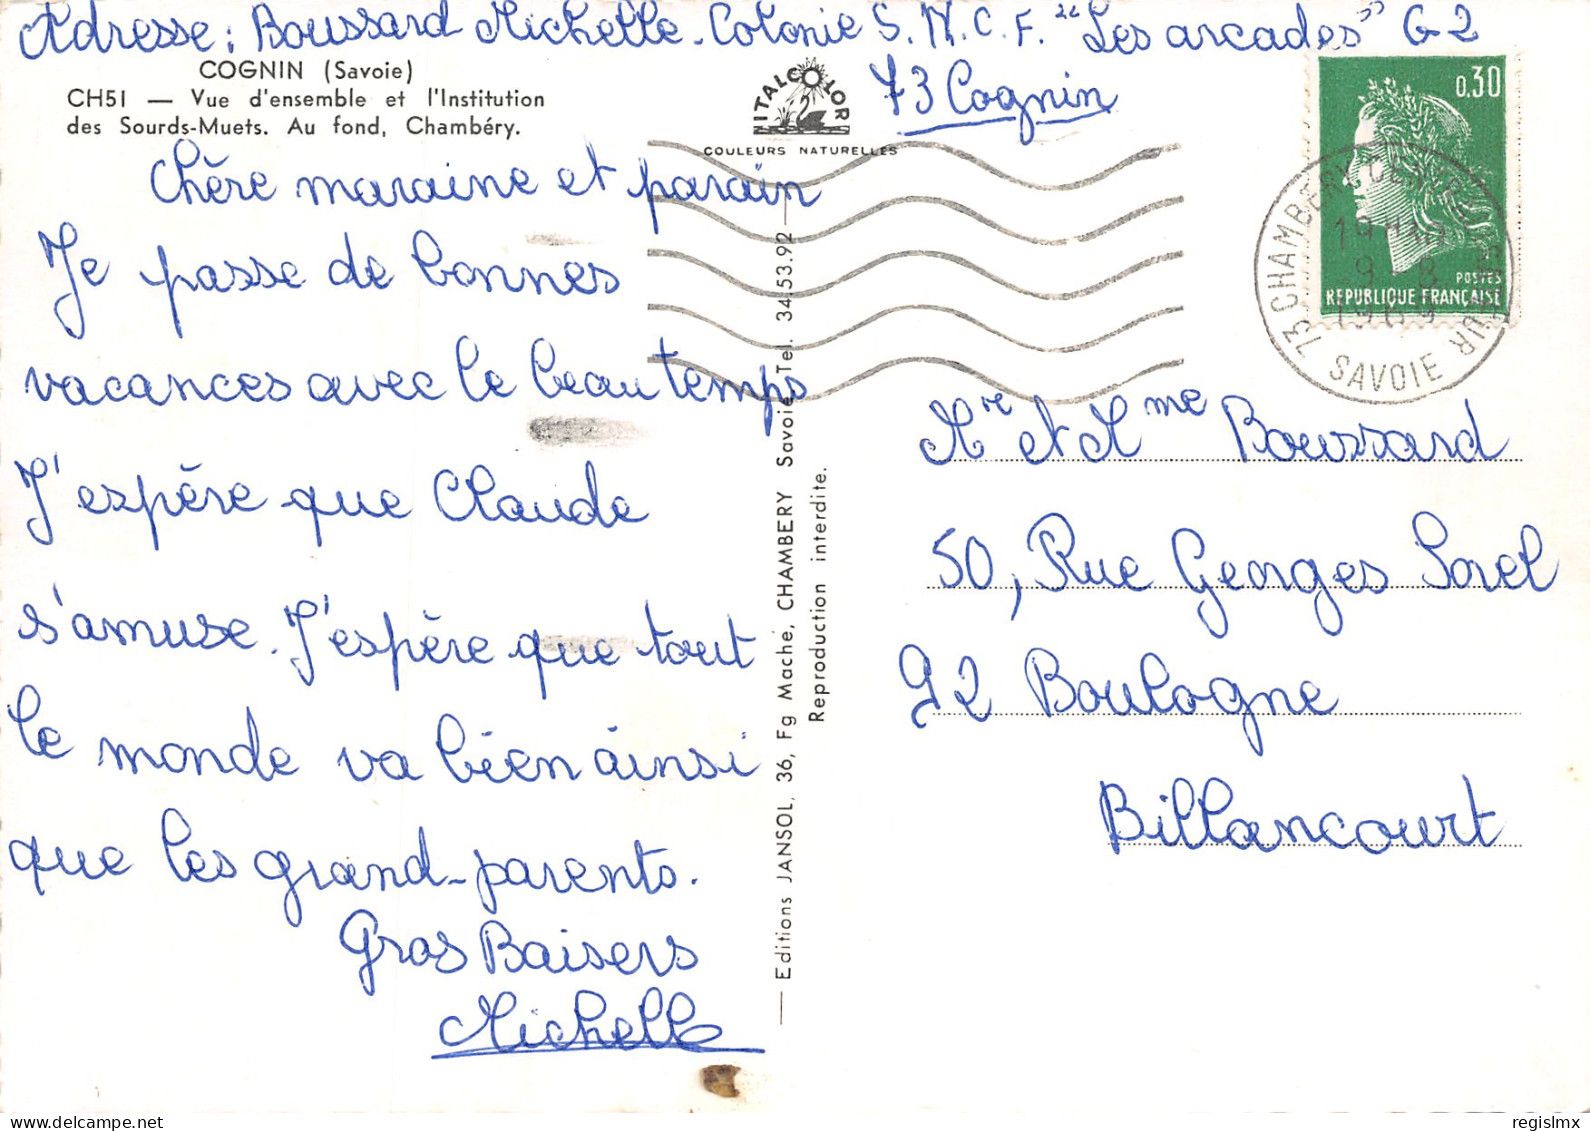 Adresse : Boussard Michelle - Colonie S.N.C.F. "Les arcades" G2
73 Cognin
COGNIN (Savoie)
CH51 — Vue d'ensemble et l'Institution
des Sourds-Muets. Au fond, Chambéry.
ITALCOLOR
COULEURS NATURELLES
chère maraine et parain
Je passe de bonnes
vacances avec le beau temps
J'espère que Claude
s'amuse. J'espère que tout
le monde va bien ainsi
que les grand-parents.
Gros Baisers
Michelle
— Editions JANSOL, 36, Fg Maché, CHAMBERY Savoie Tel. 34.53.92 —
Reproduction interdite.
0,30
POSTES
REPUBLIQUE FRANÇAISE
73 CHAMBERY
SAVOIE
Mre et Mme Boussard
50, Rue Georges Sorel
92 Boulogne
Billancourt
regislmx